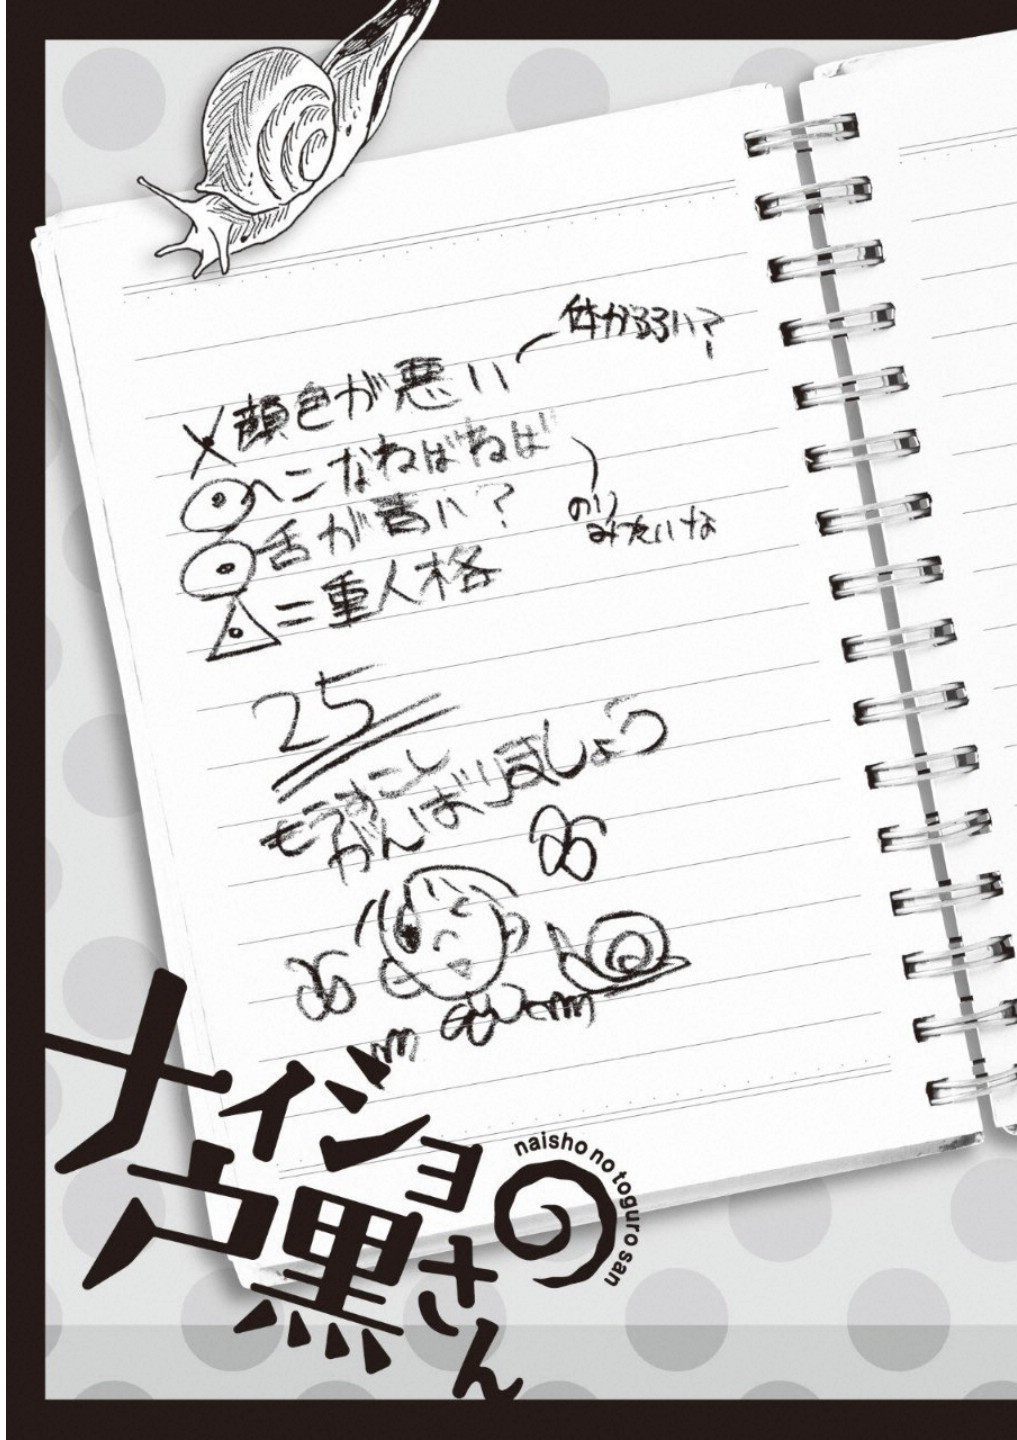 体が弱い?
顔色が悪い
へンなねばねば
のり
みたいな
舌が青い?
二重人格
25
もうすこし
がんばりましょう
ナイショの
戸黒さん
naisho no toguro san